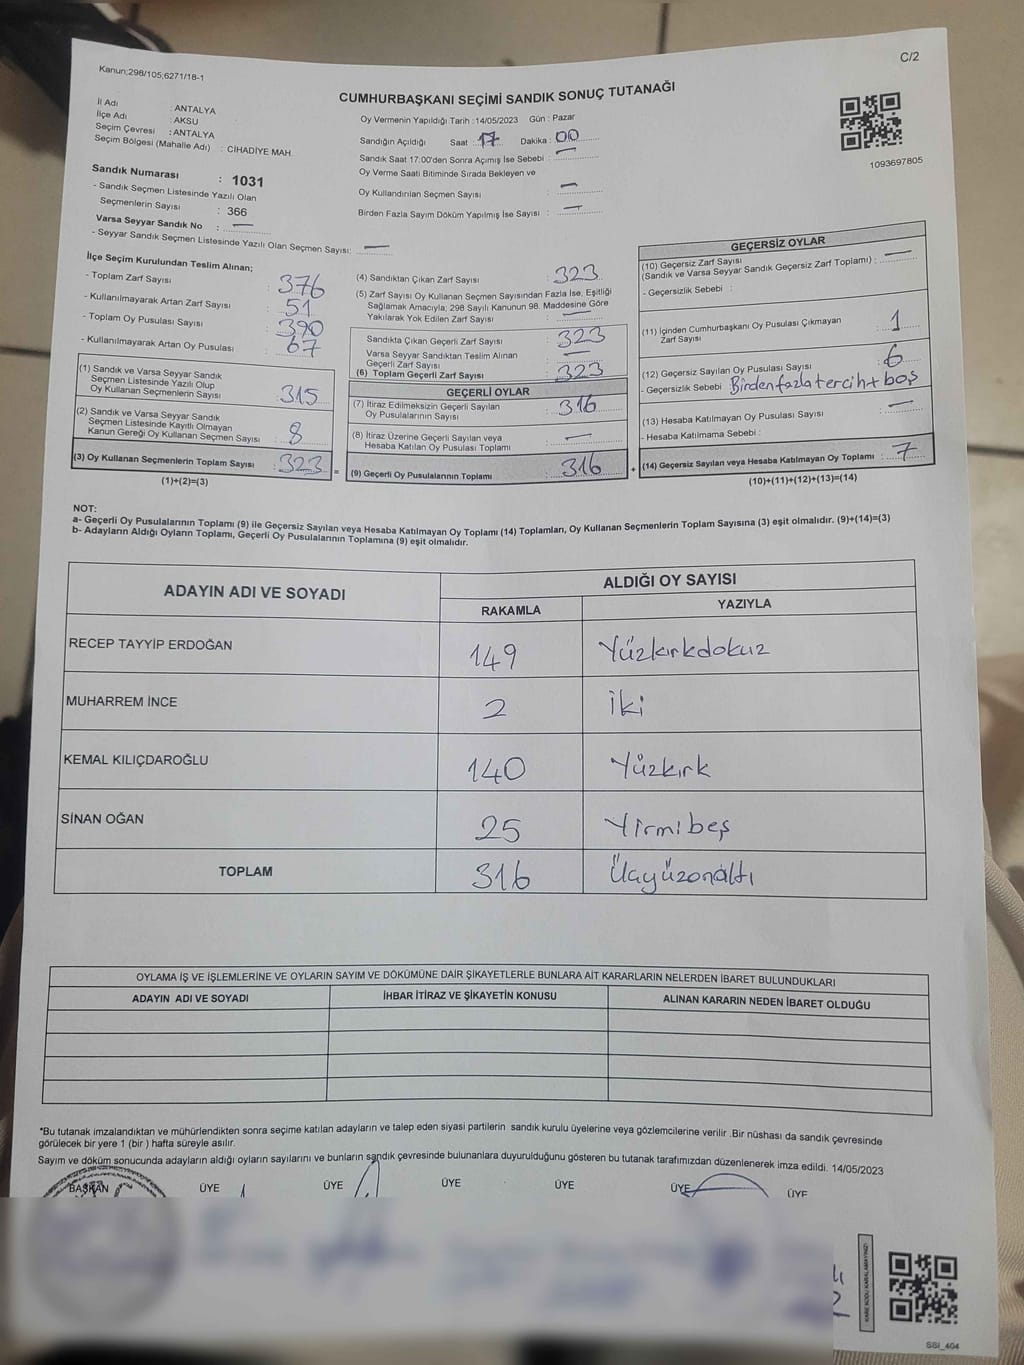 C/2
Kanun;298/105,6271/18-1
CUMHURBAŞKANI SEÇİMİ SANDIK SONUÇ TUTANAĞI
İl Adı : ANTALYA
İlçe Adı : AKSU
Seçim Çevresi : ANTALYA
Seçim Bölgesi (Mahalle Adı) : CİHADİYE MAH.
Oy Vermenin Yapıldığı Tarih :14/05/2023 Gün : Pazar
Sandığın Açıldığı Saat : 17 Dakika : 00
Sandık Saat 17:00'den Sonra Açımış İse Sebebi : —
Oy Verme Saati Bitiminde Sırada Bekleyen ve
Oy Kullandırılan Seçmen Sayısı : —
Birden Fazla Sayım Döküm Yapılmış İse Sayısı : —
1093697805
Sandık Numarası : 1031
- Sandık Seçmen Listesinde Yazılı Olan
Seçmenlerin Sayısı : 366
Varsa Seyyar Sandık No : —
- Seyyar Sandık Seçmen Listesinde Yazılı Olan Seçmen Sayısı: —
İlçe Seçim Kurulundan Teslim Alınan;
- Toplam Zarf Sayısı : 376
- Kullanılmayarak Artan Zarf Sayısı : 51
- Toplam Oy Pusulası Sayısı : 390
- Kullanılmayarak Artan Oy Pusulası : 67
(1) Sandık ve Varsa Seyyar Sandık
Seçmen Listesinde Yazılı Olup
Oy Kullanan Seçmenlerin Sayısı : 315
(2) Sandık ve Varsa Seyyar Sandık
Seçmen Listesinde Kayıtlı Olmayan
Kanun Gereği Oy Kullanan Seçmen Sayısı : 8
(3) Oy Kullanan Seçmenlerin Toplam Sayısı : 323
(1)+(2)=(3)
=
(4) Sandıktan Çıkan Zarf Sayısı : 323
(5) Zarf Sayısı Oy Kullanan Seçmen Sayısından Fazla İse, Eşitliği
Sağlamak Amacıyla; 298 Sayılı Kanunun 98. Maddesine Göre
Yakılarak Yok Edilen Zarf Sayısı : —
Sandıkta Çıkan Geçerli Zarf Sayısı : 323
Varsa Seyyar Sandıktan Teslim Alınan
Geçerli Zarf Sayısı : —
(6) Toplam Geçerli Zarf Sayısı : 323
GEÇERLİ OYLAR
(7) İtiraz Edilmeksizin Geçerli Sayılan
Oy Pusulalarının Sayısı : 316
(8) İtiraz Üzerine Geçerli Sayılan veya
Hesaba Katılan Oy Pusulası Toplamı : —
(9) Geçerli Oy Pusulalarının Toplamı : 316
+
GEÇERSİZ OYLAR
(10) Geçersiz Zarf Sayısı
(Sandık ve Varsa Seyyar Sandık Geçersiz Zarf Toplamı) : —
- Geçersizlik Sebebi :
(11) İçinden Cumhurbaşkanı Oy Pusulası Çıkmayan
Zarf Sayısı : 1
(12) Geçersiz Sayılan Oy Pusulası Sayısı : 6
- Geçersizlik Sebebi Birden fazla tercih + boş
(13) Hesaba Katılmayan Oy Pusulası Sayısı : —
- Hesaba Katılmama Sebebi :
(14) Geçersiz Sayılan veya Hesaba Katılmayan Oy Toplamı : 7
(10)+(11)+(12)+(13)=(14)
NOT:
a- Geçerli Oy Pusulalarının Toplamı (9) ile Geçersiz Sayılan veya Hesaba Katılmayan Oy Toplamı (14) Toplamları, Oy Kullanan Seçmenlerin Toplam Sayısına (3) eşit olmalıdır. (9)+(14)=(3)
b- Adayların Aldığı Oyların Toplamı, Geçerli Oy Pusulalarının Toplamına (9) eşit olmalıdır.
ADAYIN ADI VE SOYADI ALDIĞI OY SAYISI
RAKAMLA YAZIYLA
RECEP TAYYİP ERDOĞAN 149 Yüzkırkdokuz
MUHARREM İNCE 2 İki
KEMAL KILIÇDAROĞLU 140 Yüzkırk
SİNAN OĞAN 25 Yirmibeş
TOPLAM 316 Üçyüzonaltı
OYLAMA İŞ VE İŞLEMLERİNE VE OYLARIN SAYIM VE DÖKÜMÜNE DAİR ŞİKAYETLERLE BUNLARA AİT KARARLARIN NELERDEN İBARET BULUNDUKLARI
ADAYIN ADI VE SOYADI İHBAR İTİRAZ VE ŞİKAYETİN KONUSU ALINAN KARARIN NEDEN İBARET OLDUĞU
*Bu tutanak imzalandıktan ve mühürlendikten sonra seçime katılan adayların ve talep eden siyasi partilerin sandık kurulu üyelerine veya gözlemcilerine verilir .Bir nüshası da sandık çevresinde
görülecek bir yere 1 (bir ) hafta süreyle asılır.
Sayım ve döküm sonucunda adayların aldığı oyların sayılarını ve bunların sandık çevresinde bulunanlara duyurulduğunu gösteren bu tutanak tarafımızdan düzenlenerek imza edildi. 14/05/2023
BAŞKAN ÜYE ÜYE ÜYE ÜYE ÜYE ÜYE
KARE KODU KARALAMAYINIZ!
SSI_404